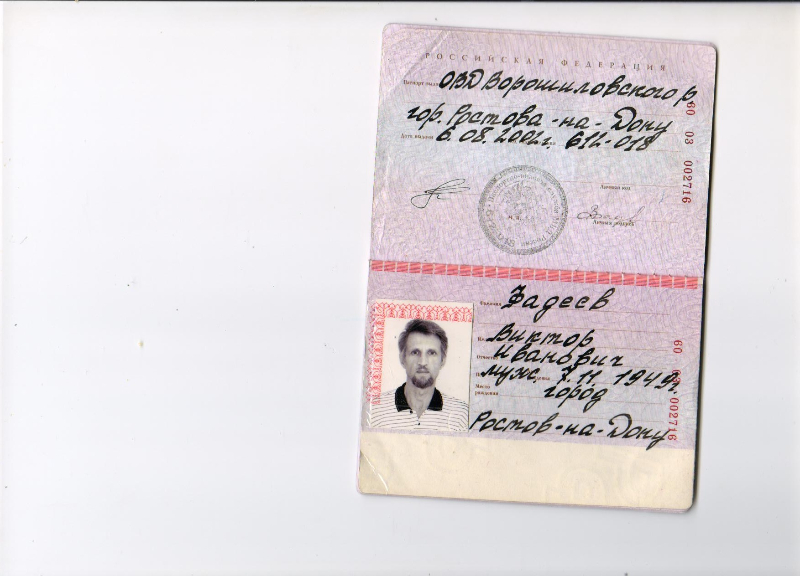 РОССИЙСКАЯ ФЕДЕРАЦИЯ
Паспорт выдан ОВД Ворошиловского р
гор. Ростова-на-Дону
Дата выдачи 6.08.2002г. 612-018
60 03 002716
Личный код
Личная подпись
Фамилия Фадеев
Имя Виктор
Отчество Иванович
муж. 7.11.1949г.
Место рождения город
Ростов-на-Дону
60 03 002716